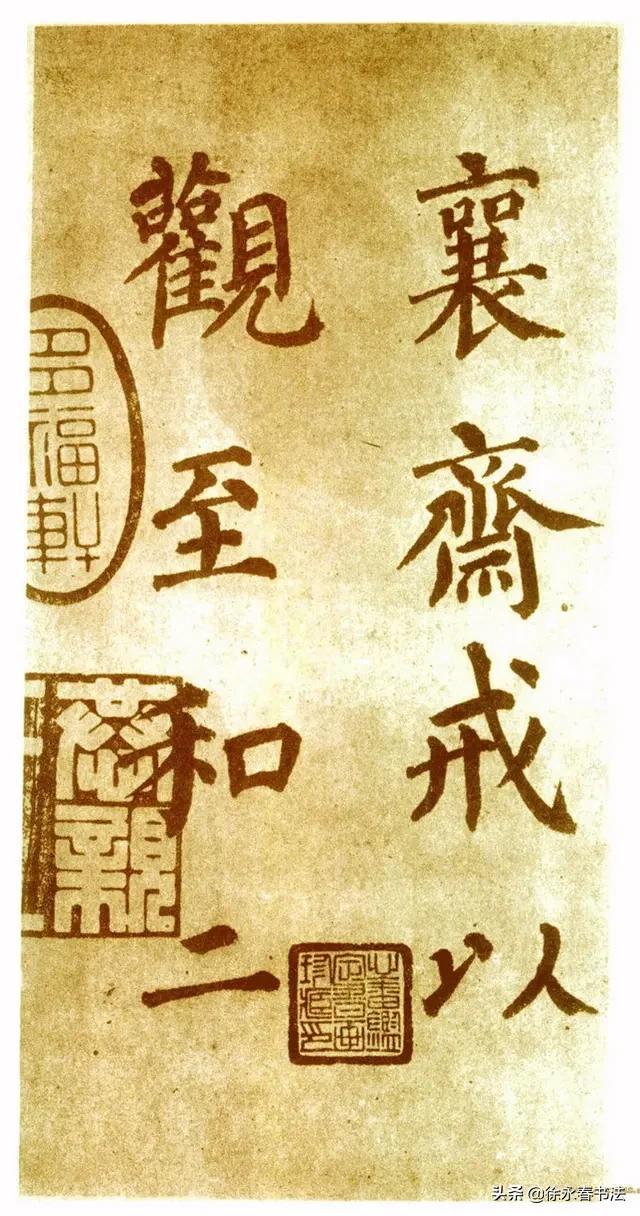 襄齋戒以
觀至和二
多福軒
恭親
头条 @徐永春书法